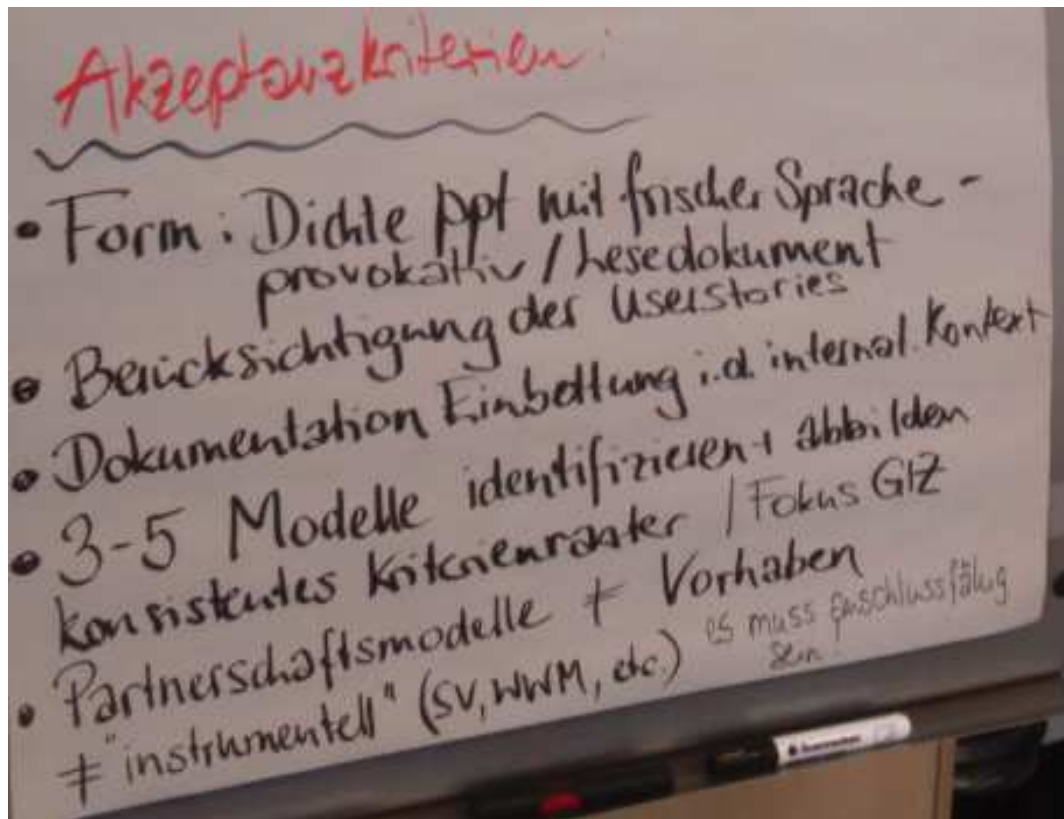 Akzeptanzkriterien:
• Form: Dichte ppt mit frischer Sprache -
provokativ / Lesedokument
• Berücksichtigung der Userstories
• Dokumentation Einbettung i.d. internal. Kontext
• 3-5 Modelle identifizieren + abbilden
konsistentes Kriterienraster / Fokus GIZ
• Partnerschaftsmodelle ≠ Vorhaben
≠ "instrumentell" (SV, WWM, etc.) es muss anschlussfähig
sein.